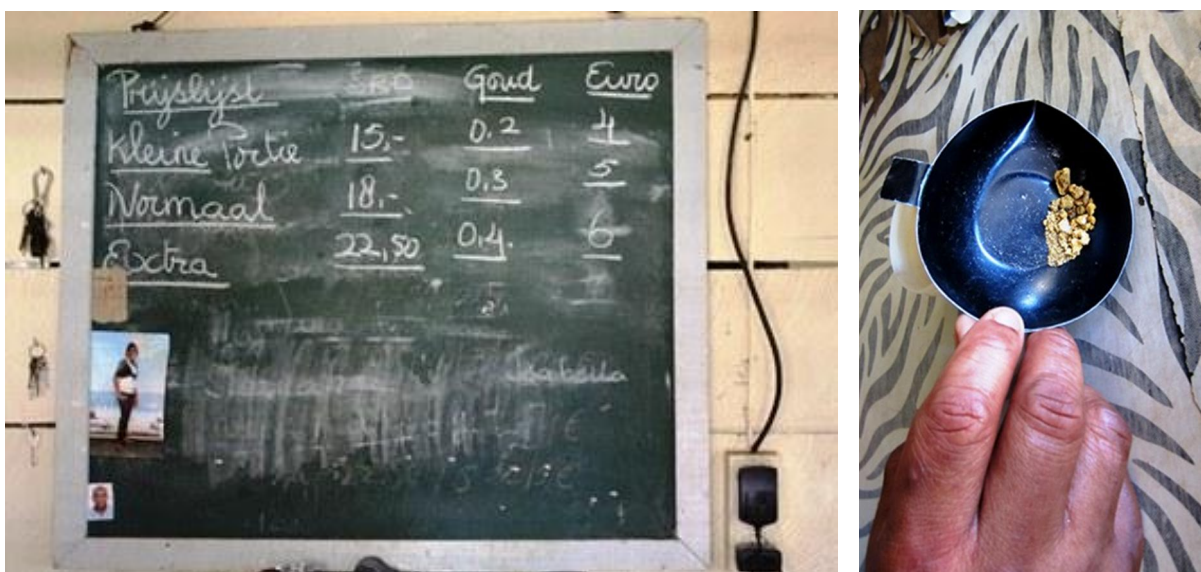 Prijslijst SRD Goud Euro
Kleine Portie 15,- 0.2 4
Normaal 18,- 0.3 5
Extra 22,50 0,4. 6
Isabella